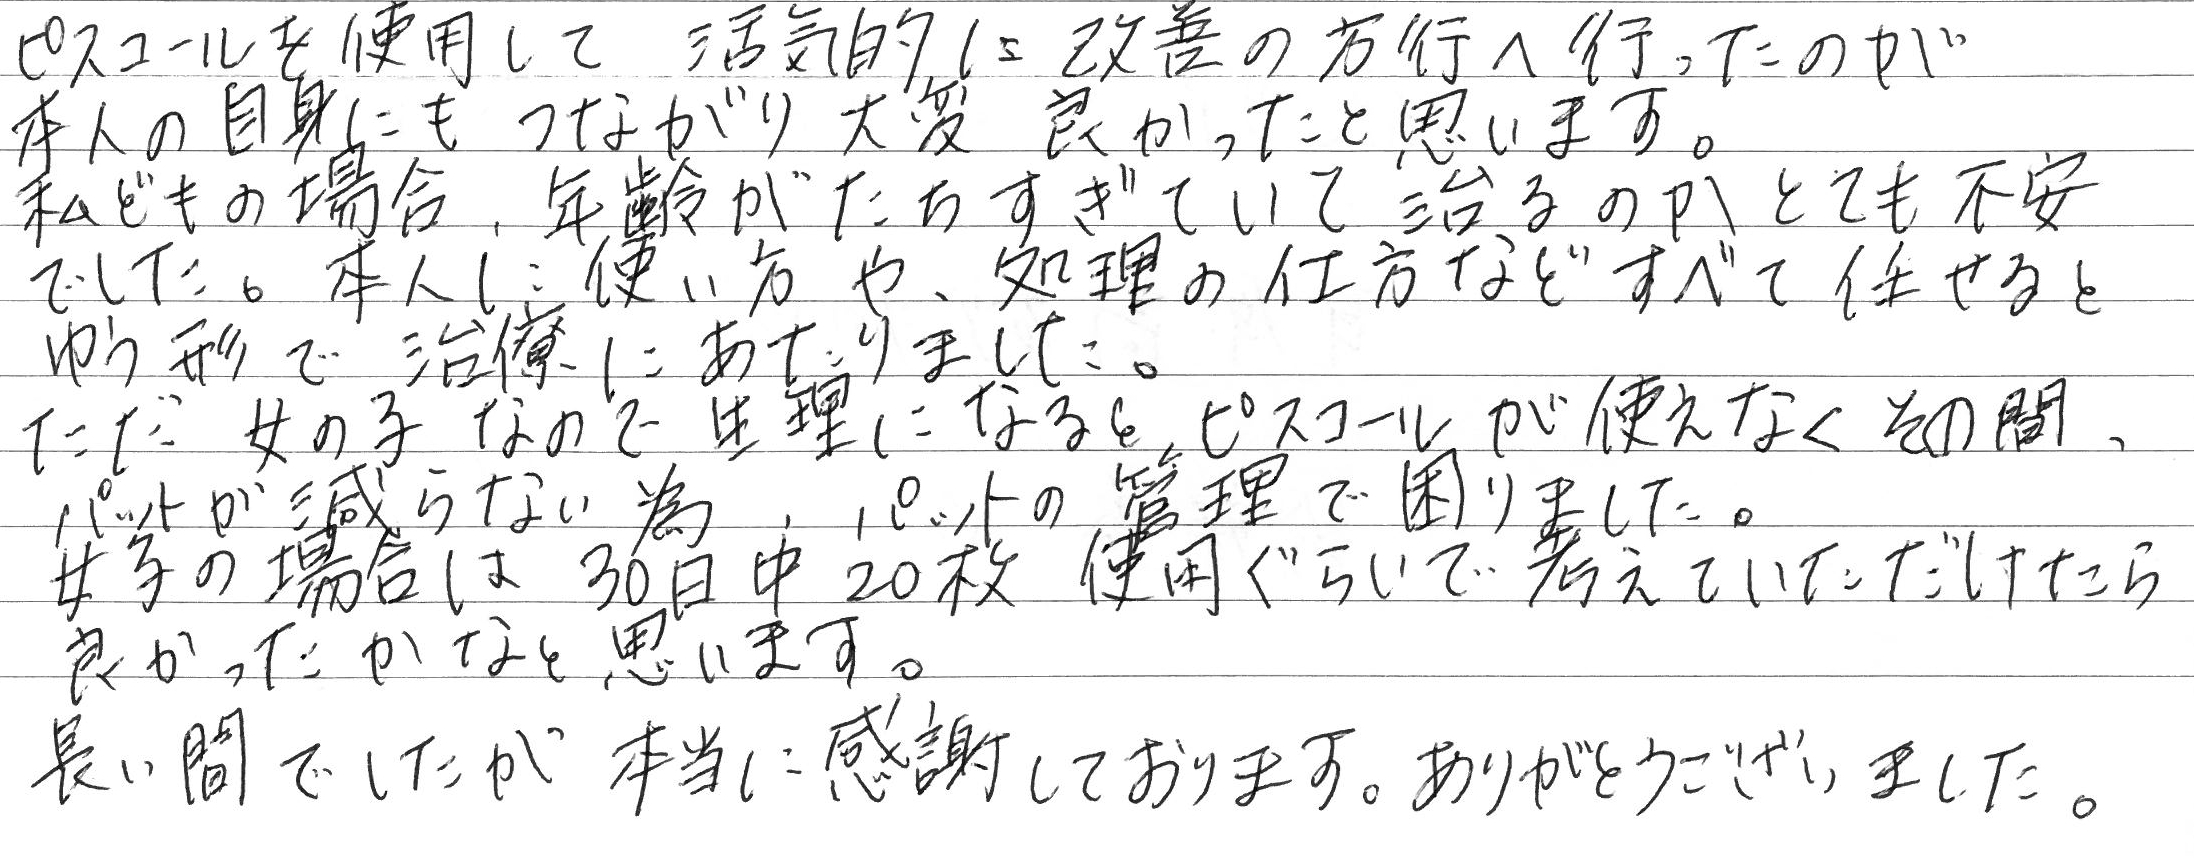 ピスコールを使用して 活気的に改善の方行へ行ったのが
本人の自身にもつながり大変 良かったと思います。
私どもの場合、年齢がたちすぎていて治るのかとても不安
でした。本人に使い方や、処理の仕方などすべて任せると
ゆう形で治療にあたりました。
ただ 女の子なので生理になると、ピスコールが使えなくその間、
パットが減らない為、パットの管理で困りました。
女子の場合は30日中20枚 使用ぐらいで考えていただけたら
良かったかなと思います。
長い間でしたが本当に感謝しております。ありがとうございました。